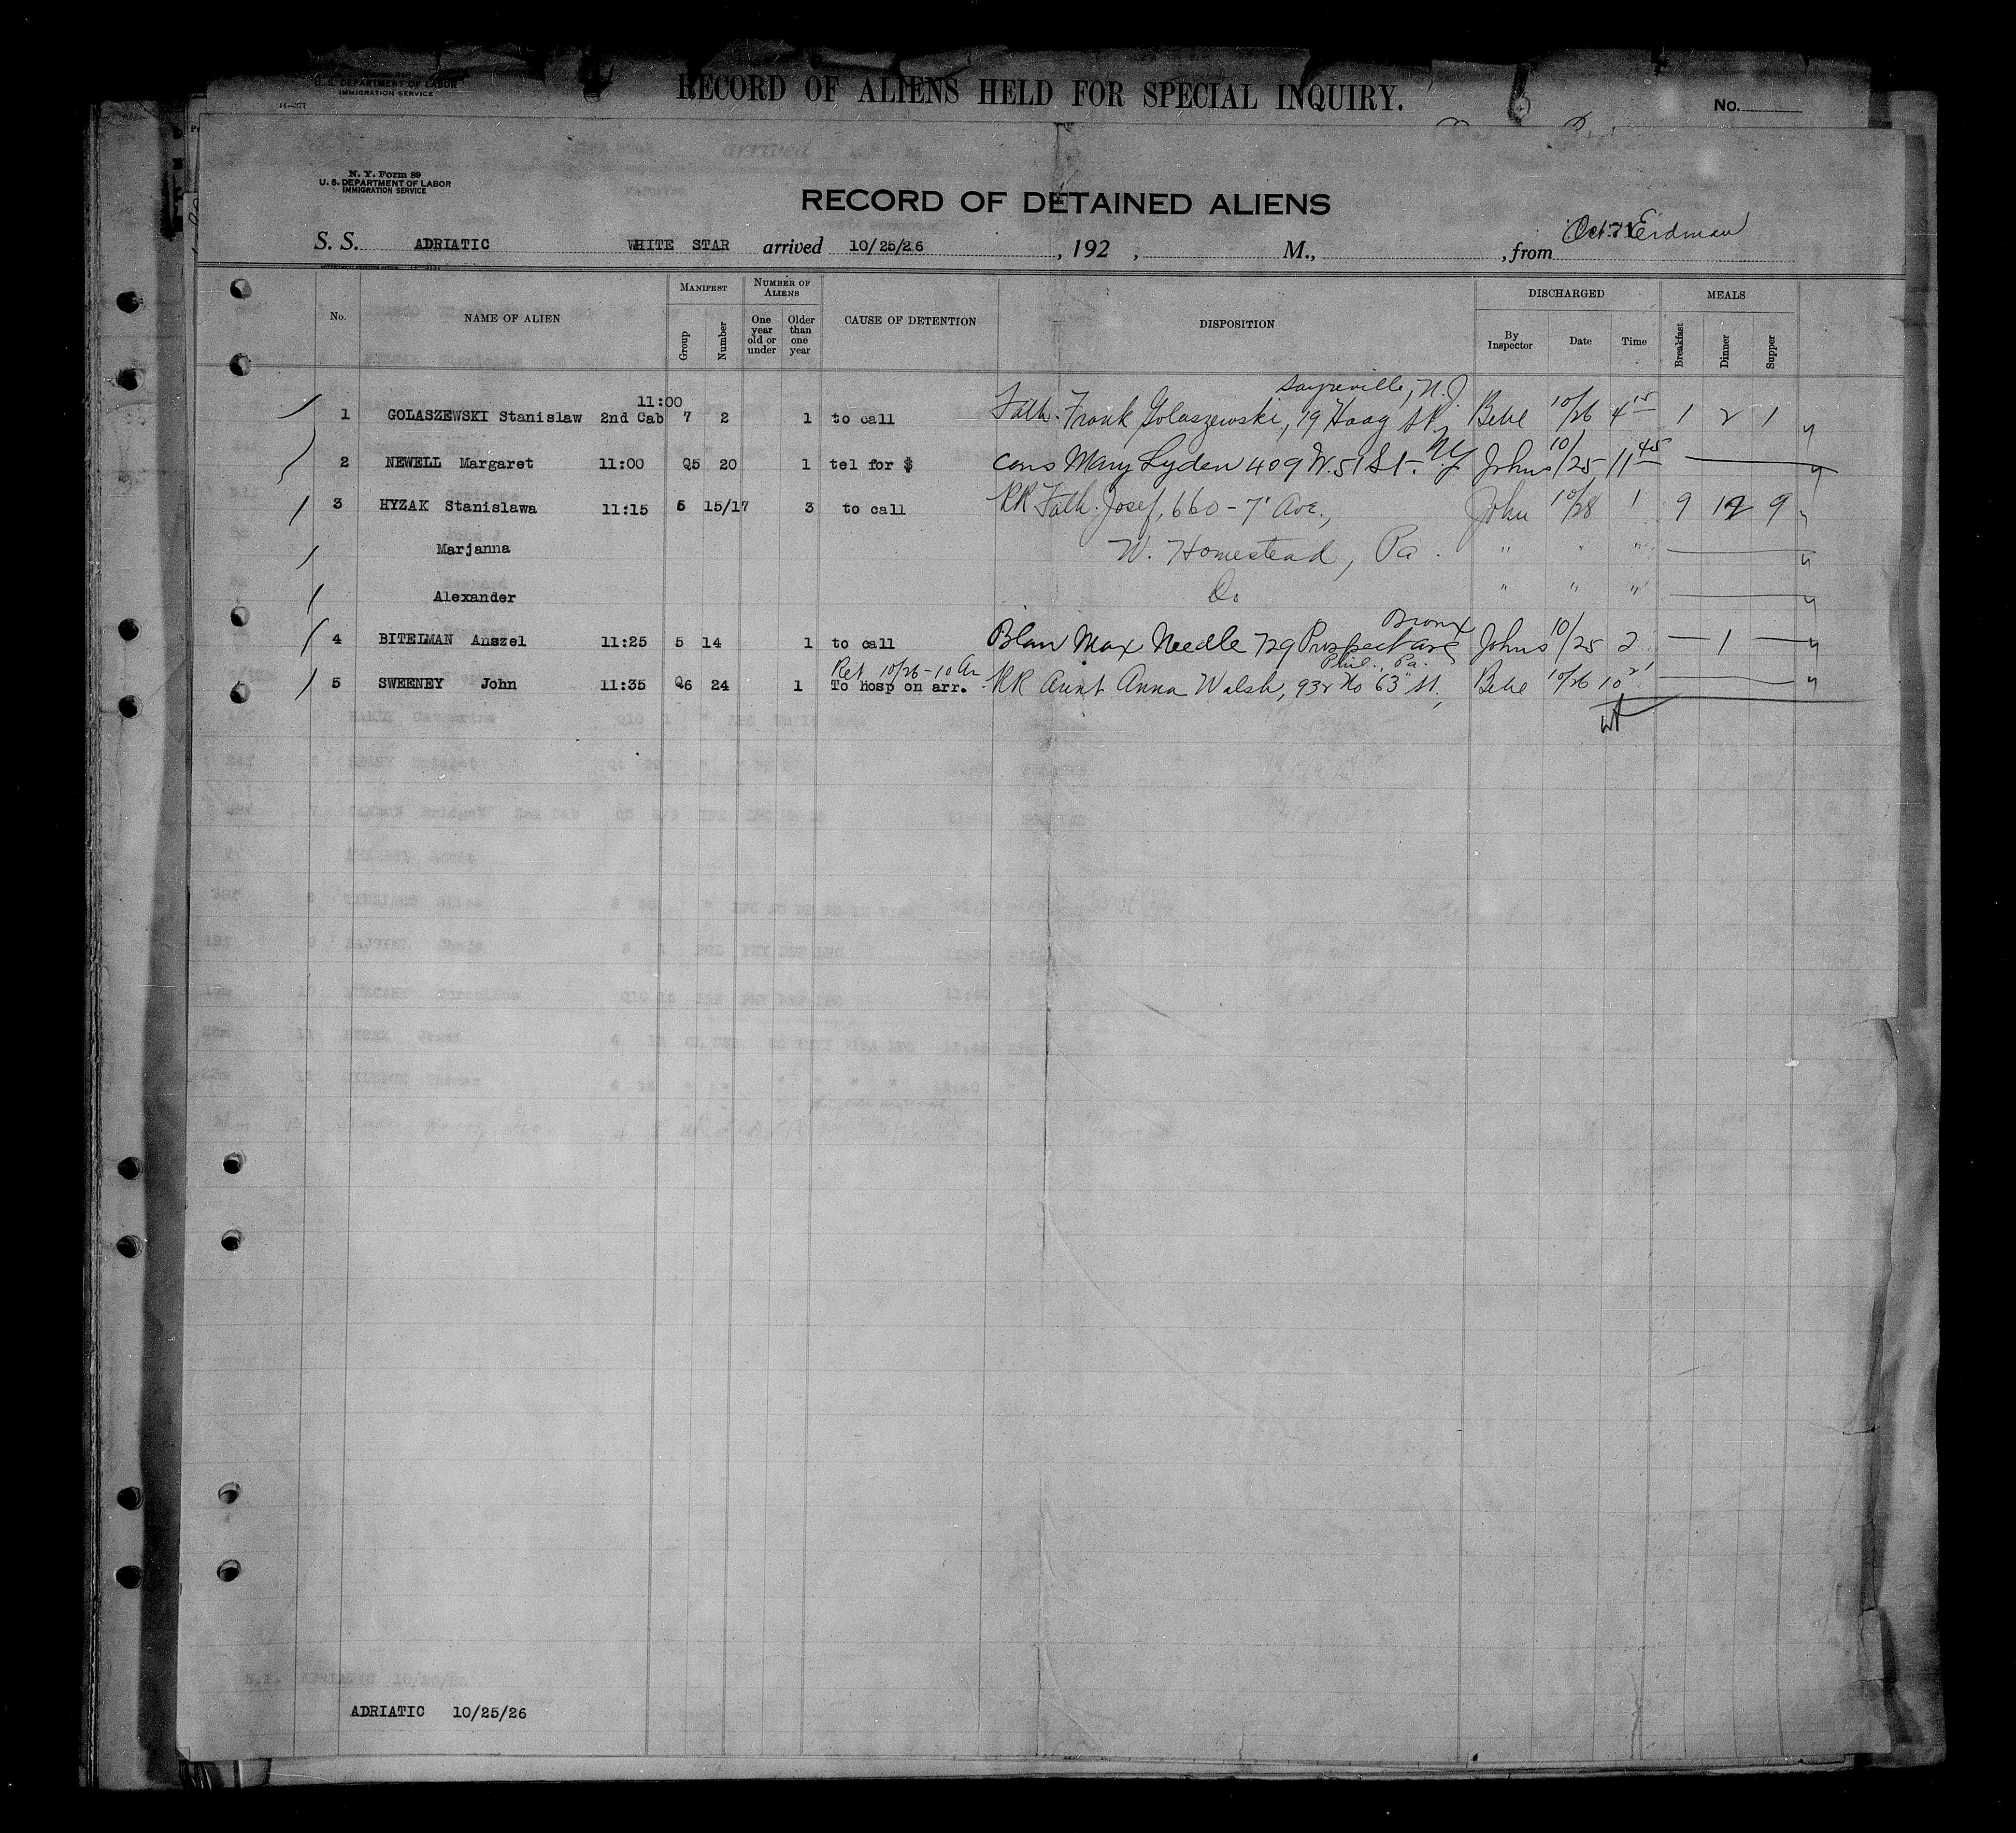 U. S. DEPARTMENT OF LABOR
IMMIGRATION SERVICE
14—377
RECORD OF ALIENS HELD FOR SPECIAL INQUIRY.
No.
N. Y. Form 89
U. S. DEPARTMENT OF LABOR
IMMIGRATION SERVICE
RECORD OF DETAINED ALIENS
Erdman
S. S. ADRIATIC WHITE STAR arrived 10/25/26 , 192 , M., , from
MANIFEST NUMBER OF ALIENS DISCHARGED MEALS
No. NAME OF ALIEN Group Number One year old or under Older than one year CAUSE OF DETENTION DISPOSITION By Inspector Date Time Breakfast Dinner Supper
11:00 Sayreville, N.J.
1 GOLASZEWSKI Stanislaw 2nd Cab 7 2 1 to call Fath. Frank Golaszewski, 79 Haag St, 10/26 4 15 1 2 1
2 NEWELL Margaret 11:00 Q5 20 1 tel for $ cons Mary Lyden 409 W. 51 St. NY Johns 10/25 11 45
3 HYZAK Stanislawa 11:15 5 15/17 3 to call RR Fath. Josef, 660 - 7" Ave., John 10/28 1 9 12 9
Marjanna W. Homestead, Pa. " " "
Alexander Do " " "
Bronx
4 BITELMAN Anszel 11:25 5 14 1 to call Max Needle 729 Prospect ave Johns 10/25 2 1
Ret 10/26 - 10 Phil., Pa.
5 SWEENEY John 11:35 Q6 24 1 To hosp on arr. RR Aunt Anna Walsh, 932 No 63" St, 10/26 10
ADRIATIC 10/25/26